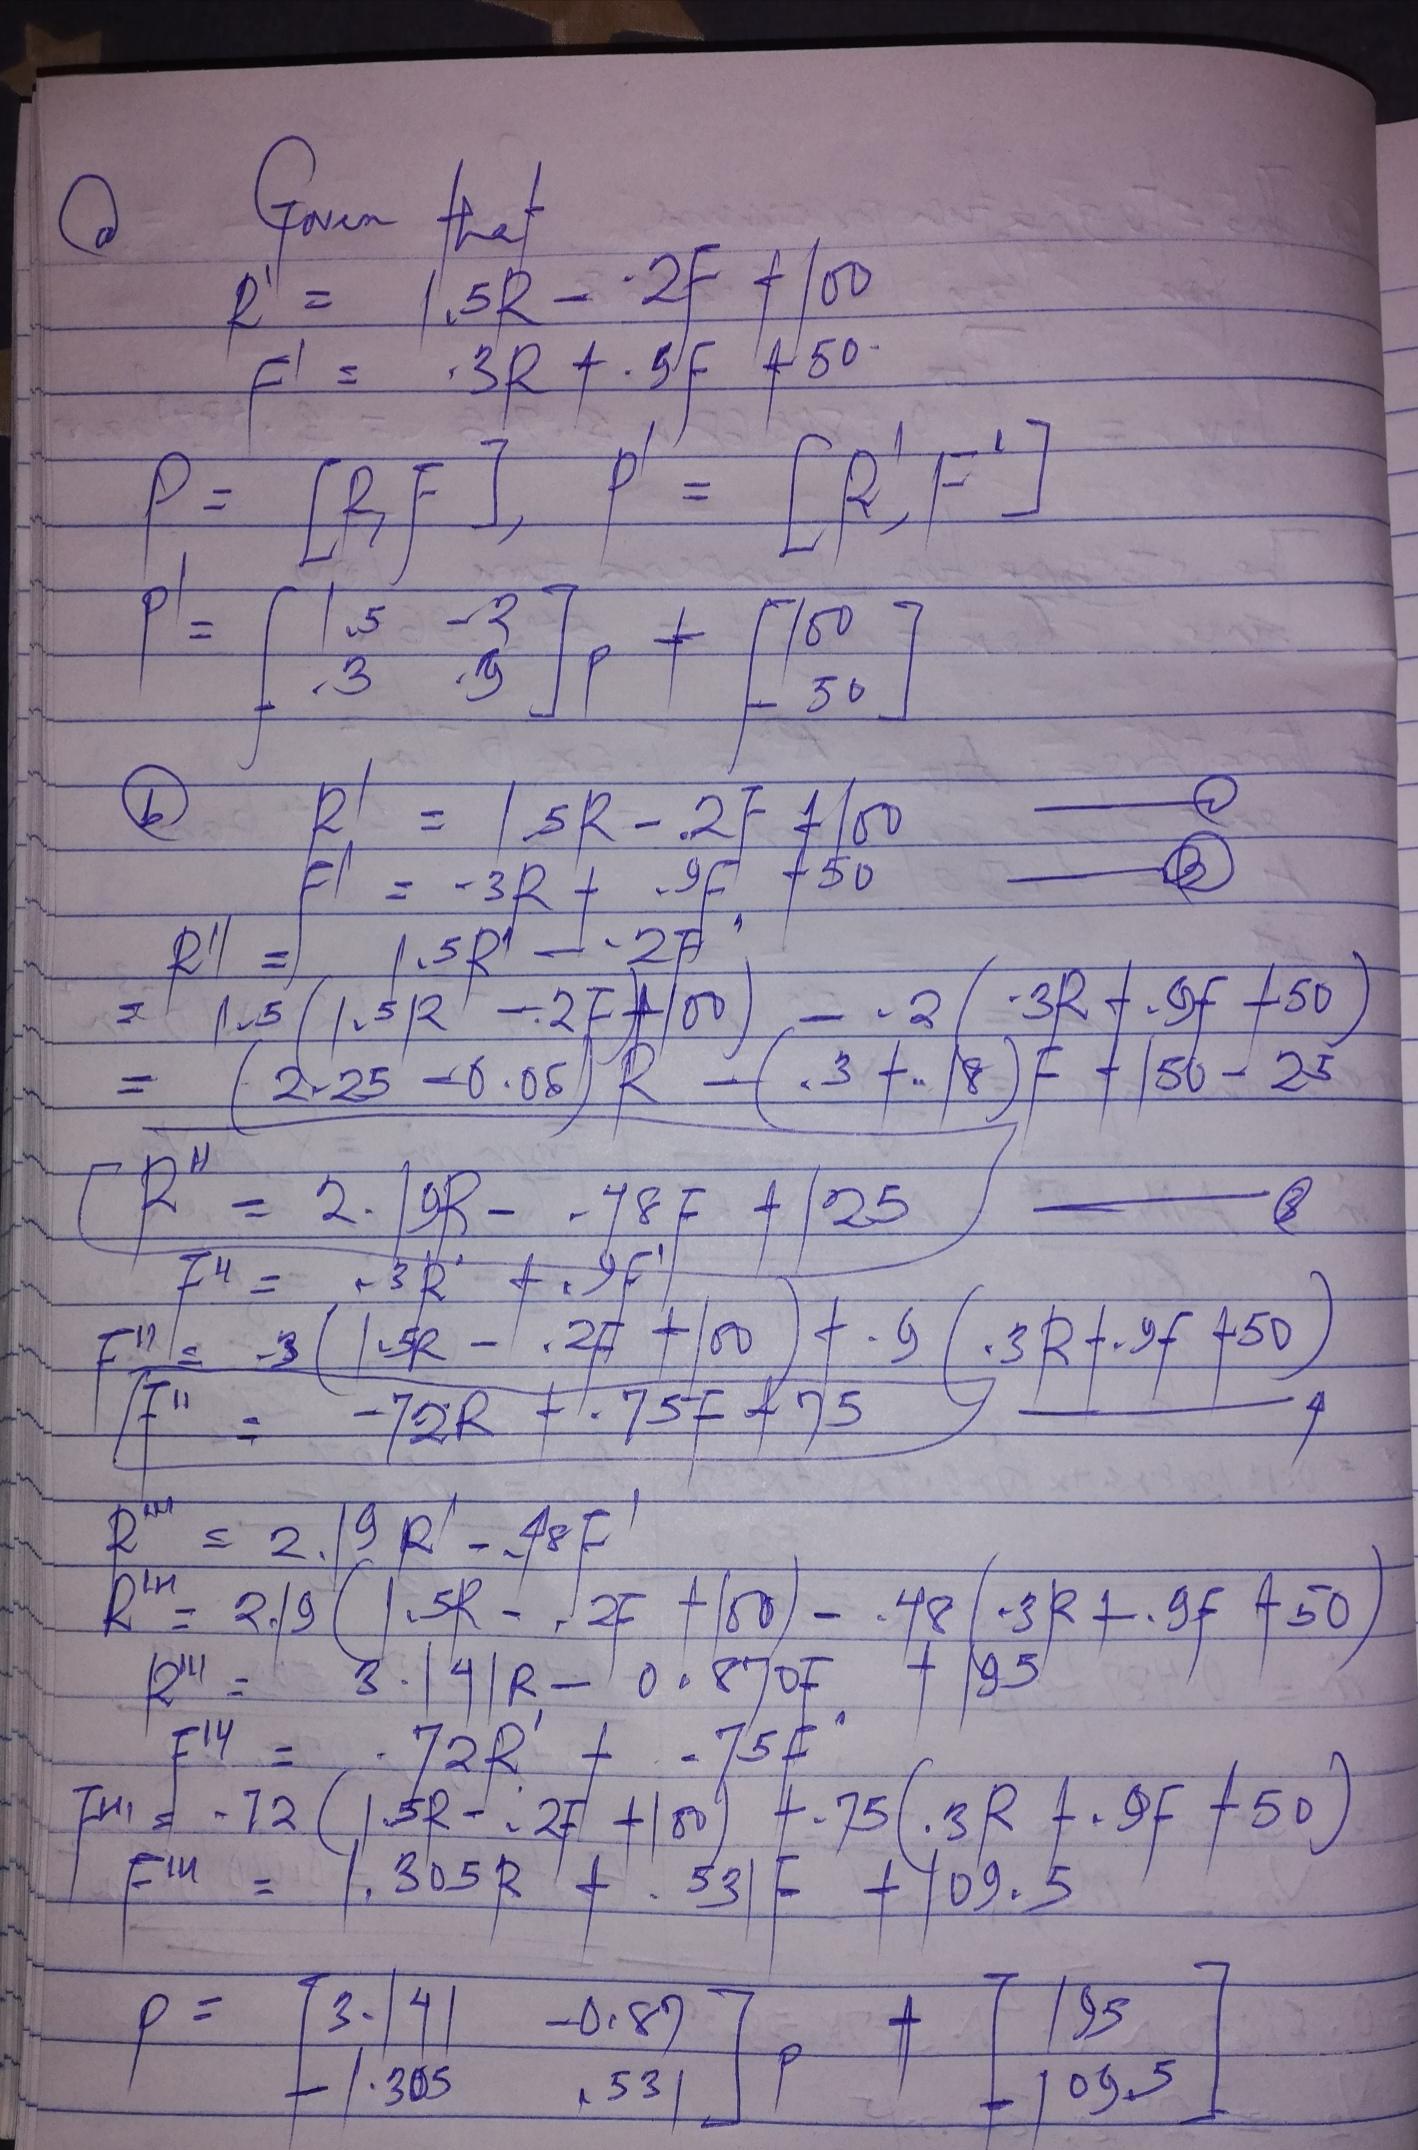 a Given that
R' = 1.5R - .2F + 100
F' = .3R + .9F + 50
P = [R, F], P' = [R', F']
P' = [ 1.5 -.2 ] P + [ 100 ]
[ .3 .9 ] [ 50 ]
b R' = 1.5R - .2F + 100 — 1
F' = .3R + .9F + 50 — 2
R'' = 1.5R' - .2F'
= 1.5(1.5R - .2F + 100) - .2(.3R + .9F + 50)
= (2.25 - 0.06)R - (.3 + .18)F + 150 - 25
R'' = 2.19R - .48F + 125 — 3
F'' = .3R' + .9F'
F'' = .3(1.5R - .2F + 100) + .9(.3R + .9F + 50)
F'' = .72R + .75F + 75 — 4
R''' = 2.19R' - .48F'
R''' = 2.19(1.5R - .2F + 100) - .48(.3R + .9F + 50)
R''' = 3.141R - 0.870F + 195
F''' = .72R' + .75F'
F''' = .72(1.5R - .2F + 100) + .75(.3R + .9F + 50)
F''' = 1.305R + .531F + 109.5
P = [ 3.141 -0.87 ] P + [ 195 ]
[ 1.305 .531 ] [ 109.5 ]